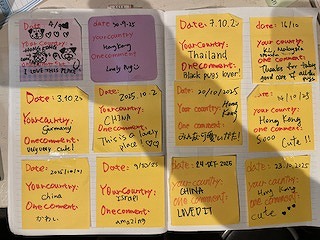 Date: 4/
Your country:
I LOVE THIS PLACE
date 30.9.25
your country
Hong Kong
Lovely Pugs
Date: 7.10.2
Your country:
Thailand
One comment:
Black pugs lover!
date: 16/10
Your country:
Malaysia
One comment:
Thanks for taking
good care of all the
pugs
Date: 3.10.2
Your country:
Germany
One comment:
cute!
Date: 2025.10.2
Your country:
CHINA
One comment:
This is a lovely
place!
Date: 20/10/2025
Your country:
Hong
Kong
One comment:
Date: 24/10/23
Your country:
Hong Kong
one comment:
Sooo cute!!
Date: 2025/10/21
Your country:
China
One comment:
かわいい
Date: 9/30/25
Your country:
ISRAEL
One comment:
amazing
date: 24-OCT-2025
your country:
CHINA
one comment:
LOVE IT
Date: 23.10.2025
your country:
Hong Kong
one comment:
cute